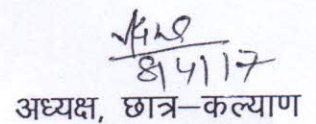 8/4/17
अध्यक्ष, छात्र–कल्याण